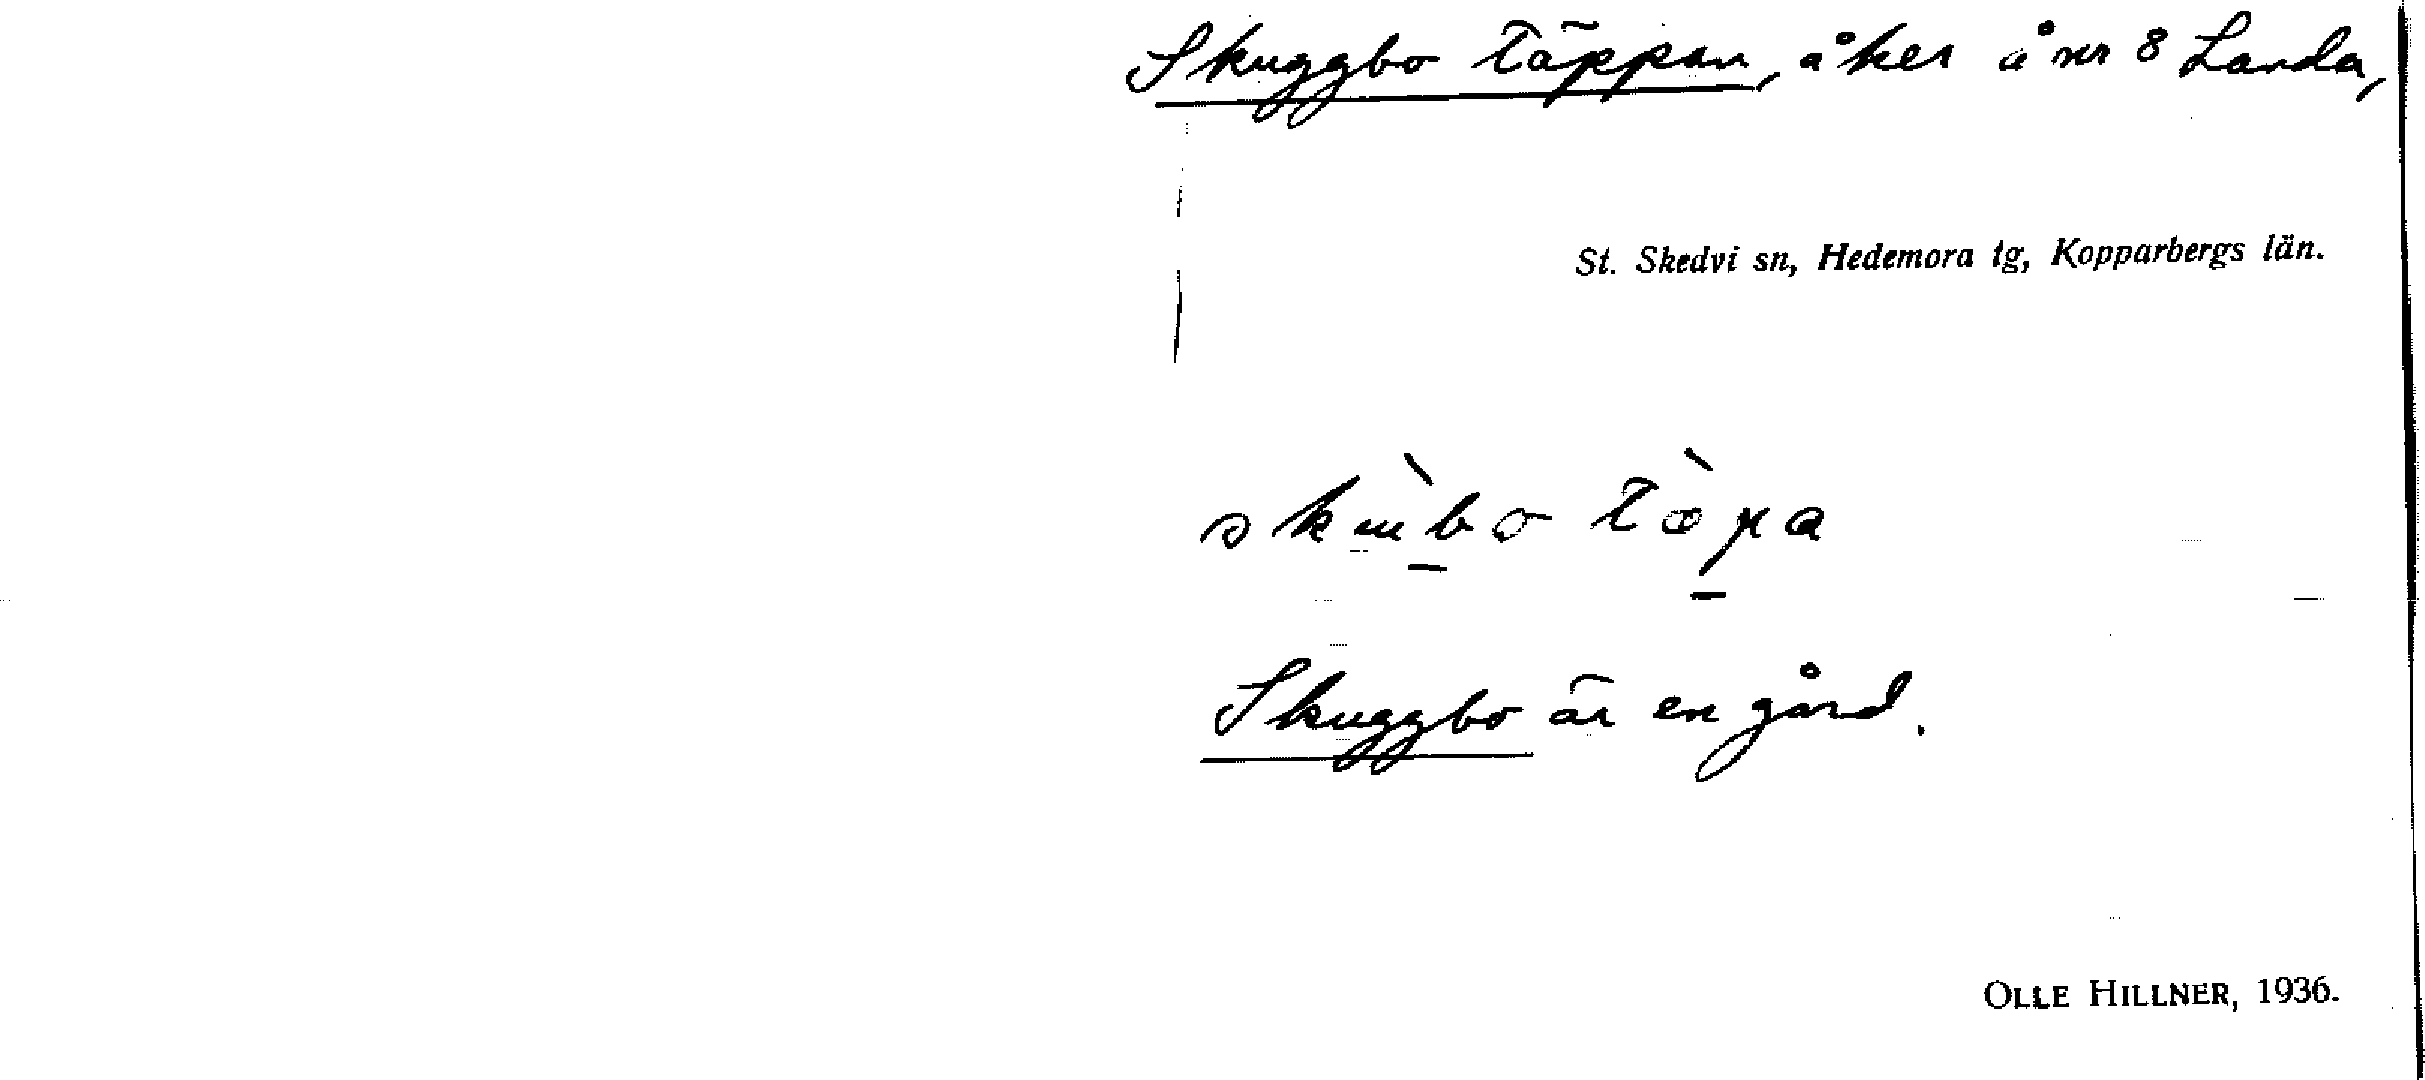 Skuggbo täppan, åker å nr 8 Landa,
St. Skedvi sn, Hedemora tg, Kopparbergs län.
Skuggbo är en gård.
OLLE HILLNER, 1936.